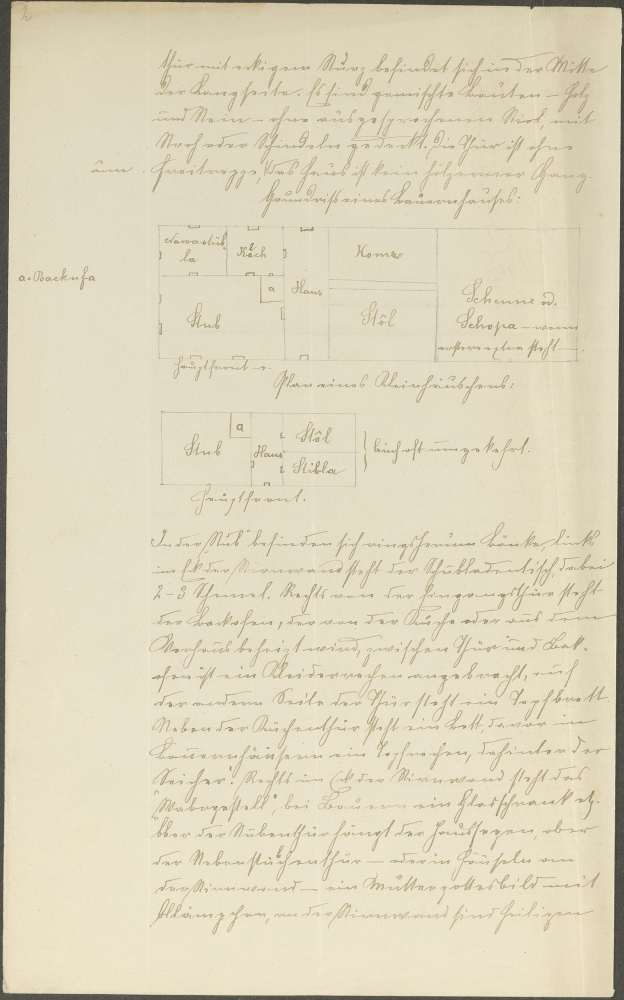 2
thür mit eckigem Sturz befindet sich in der Mitte
der Langseite. Es sind gemischte Bauten – Holz
und Stein – ohne ausgesprochenen Stiel, mit
Stroh oder Schindeln gedeckt. Die Thür ist ohne
Freitreppe, das Haus ist kein hölzerner Gang.
Grundriß eines Bauernhauses:
a = Backufa
Stub
a
Haus
Stôl
Scheune od.
Schopa – wenn
steht
Hauptfront
Plan eines Kleinhäuschens:
Stub
a
Haus
Stôl
Stibla
auch oft umgekehrt.
Hauptfront.
In der "Stub" befinden sich ringsherum Bänke, links
im Eck der Stirnwand steht der Schubladentisch, dabei
2-3 Schemel. Rechts von der Eingangsthür steht
der Backofen, der von der Küche oder aus dem
Vorhaus beheizt wird, zwischen Thür und Back-
ofen ist ein Kleiderrechen angebracht, auf
der andern Seite der Thür steht ein Topfbrett.
Neben der Küchenthür steht ein Bett, davor in
Bauernhäusern ein Topfrechen, dahinter der
Rechts im Eck der Stirnwand steht das
bei Bauern ein Glasschrank etz.
Über der Stubenthür hängt der Haussegen, ober
der Nebenstübchenthür – oder in Häuseln an
der Stirnwand – ein Muttergottesbild mit
Öllämpchen, an der Stirnwand sind Heiligen